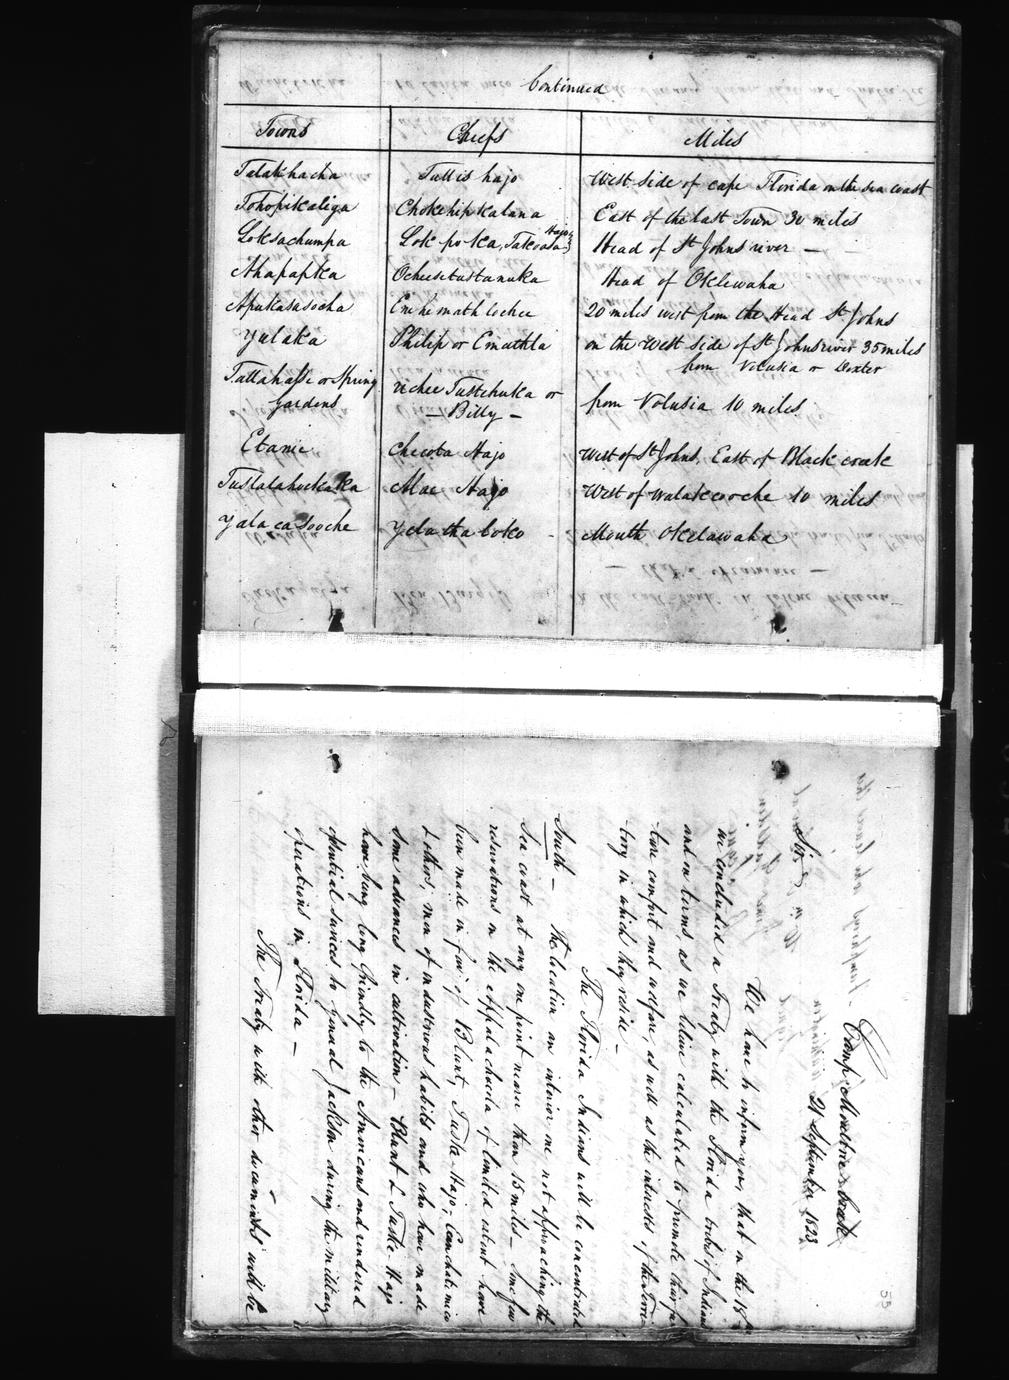 Continued
Towns Chiefs Miles
Talakhacha Tuttis hajo West side of cape Florida on the sea coast
Tohopikaliga Chokehipkalana East of the last Town 30 miles
Loksachumpa Lok po ka, Takoasa Hajo Head of St Johns river —
Ahapapka Ocheesetustanuka Head of Oklewaha
Apukasasocha Enhemathlochee 20 miles west from the Head St Johns
Yalaka Philip or Emathla on the West side of St Johns river 35 miles
from Volusia or Dexter
Tallahasse or Spring
Gardens
Uchee Tustehuka or
— Billy —
from Volusia 10 miles
Etanie Checota Hajo West of St Johns, East of Black creek
Tuslalahockaka Alac Hajo West of Walalecooche 10 miles
Yalacasooche Yelathaloko - Mouth Oklawaha
55
Camp Moultrie creek
21 September 1823
Sir
We have to inform you, that on the 18th
we concluded a Treaty with the Florida tribes of Indians
and on terms, as we believe calculated to promote their fu
ture comfort and welfare, as well as the interests of the Terri
tory in which they reside —
The Florida Indians will be concentrated
South — The location an interior one not approaching the
Sea coast at any one point nearer than 15 miles — Some few
reservations on the Appalachacola of limited extent have
been made in fav: of Blunt, Tuski Hajo, Conchatimico
& others, men of industrious habits and who have made
some advances in cultivation — Blunt & Tuski Hajo
have being long friendly to the Americans and rendered
essential services to General Jackson during the military
operations in Florida —
The Treaty with other documents will be